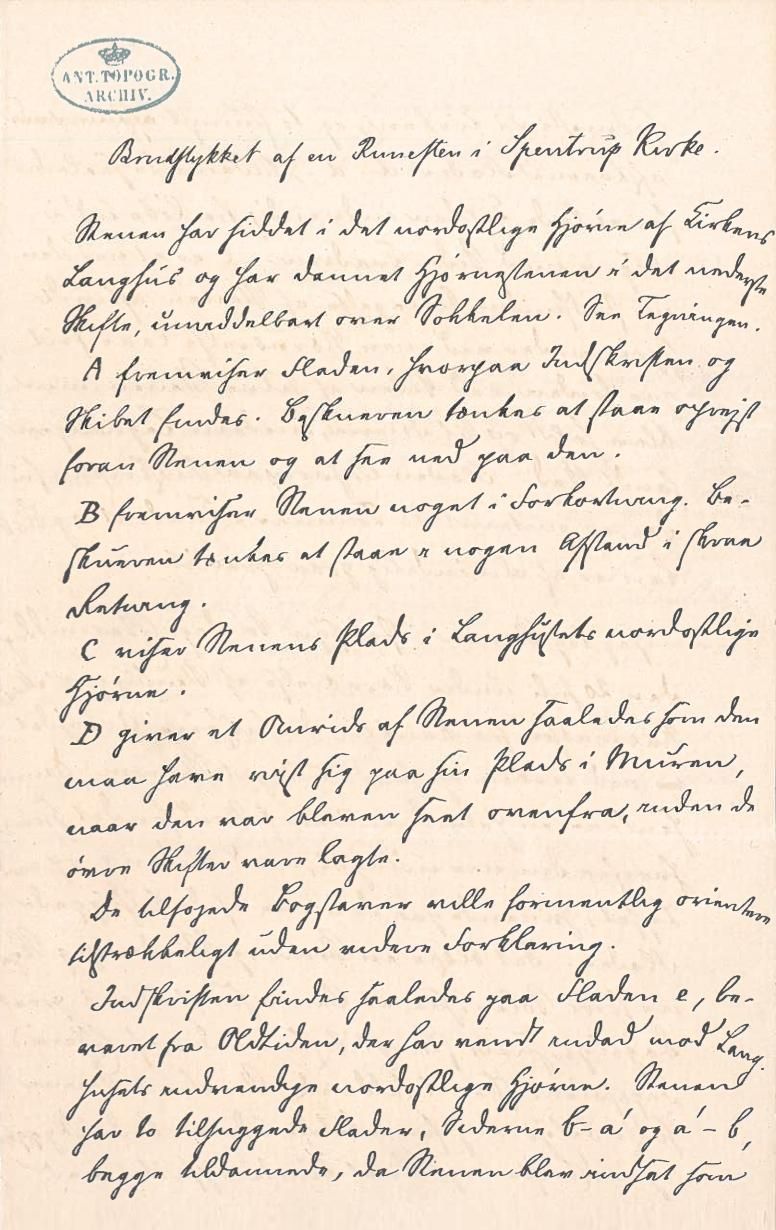 ANT. TOPOGR.
ARCHIV.
Brudstykket af en Runesten i Spentrup Kirke.
Stenen har siddet i det nordostlige Hjørne af Kirkens
Langhus og har dannet Hjørnestenen i det nederste
Skifte, umiddelbart over Sokkelen. See Tegningen.
A fremviser Fladen, hvorpaa Indskriften og
Skibet findes. Beskueren tænkes at staae opreist
foran Stenen og at see ned paa den.
B fremviser Stenen noget i Forkortning. Be-
skueren tænkes at staae i nogen Afstand i skraa
Retning.
C viser Stenens Plads i Langhusets nordostlige
Hjørne.
D giver et Omrids af Stenen saaledes som den
maa have viist sig paa sin Plads i Muren,
naar den var bleven seet ovenfra, inden de
øvre Skifter vare lagte.
De tilføjede Bogstaver ville formentlig orientere
tilstrækkeligt uden videre Forklaring.
Indskriften findes saaledes paa Fladen e, be-
varet fra Oldtiden, der har vendt indad mod Lang-
husets indvendige nordostlige Hjørne. Stenen
har to tilhuggede Flader, Siderne b-a' og a'-b,
begge tildannede, da Stenen blev indsat som